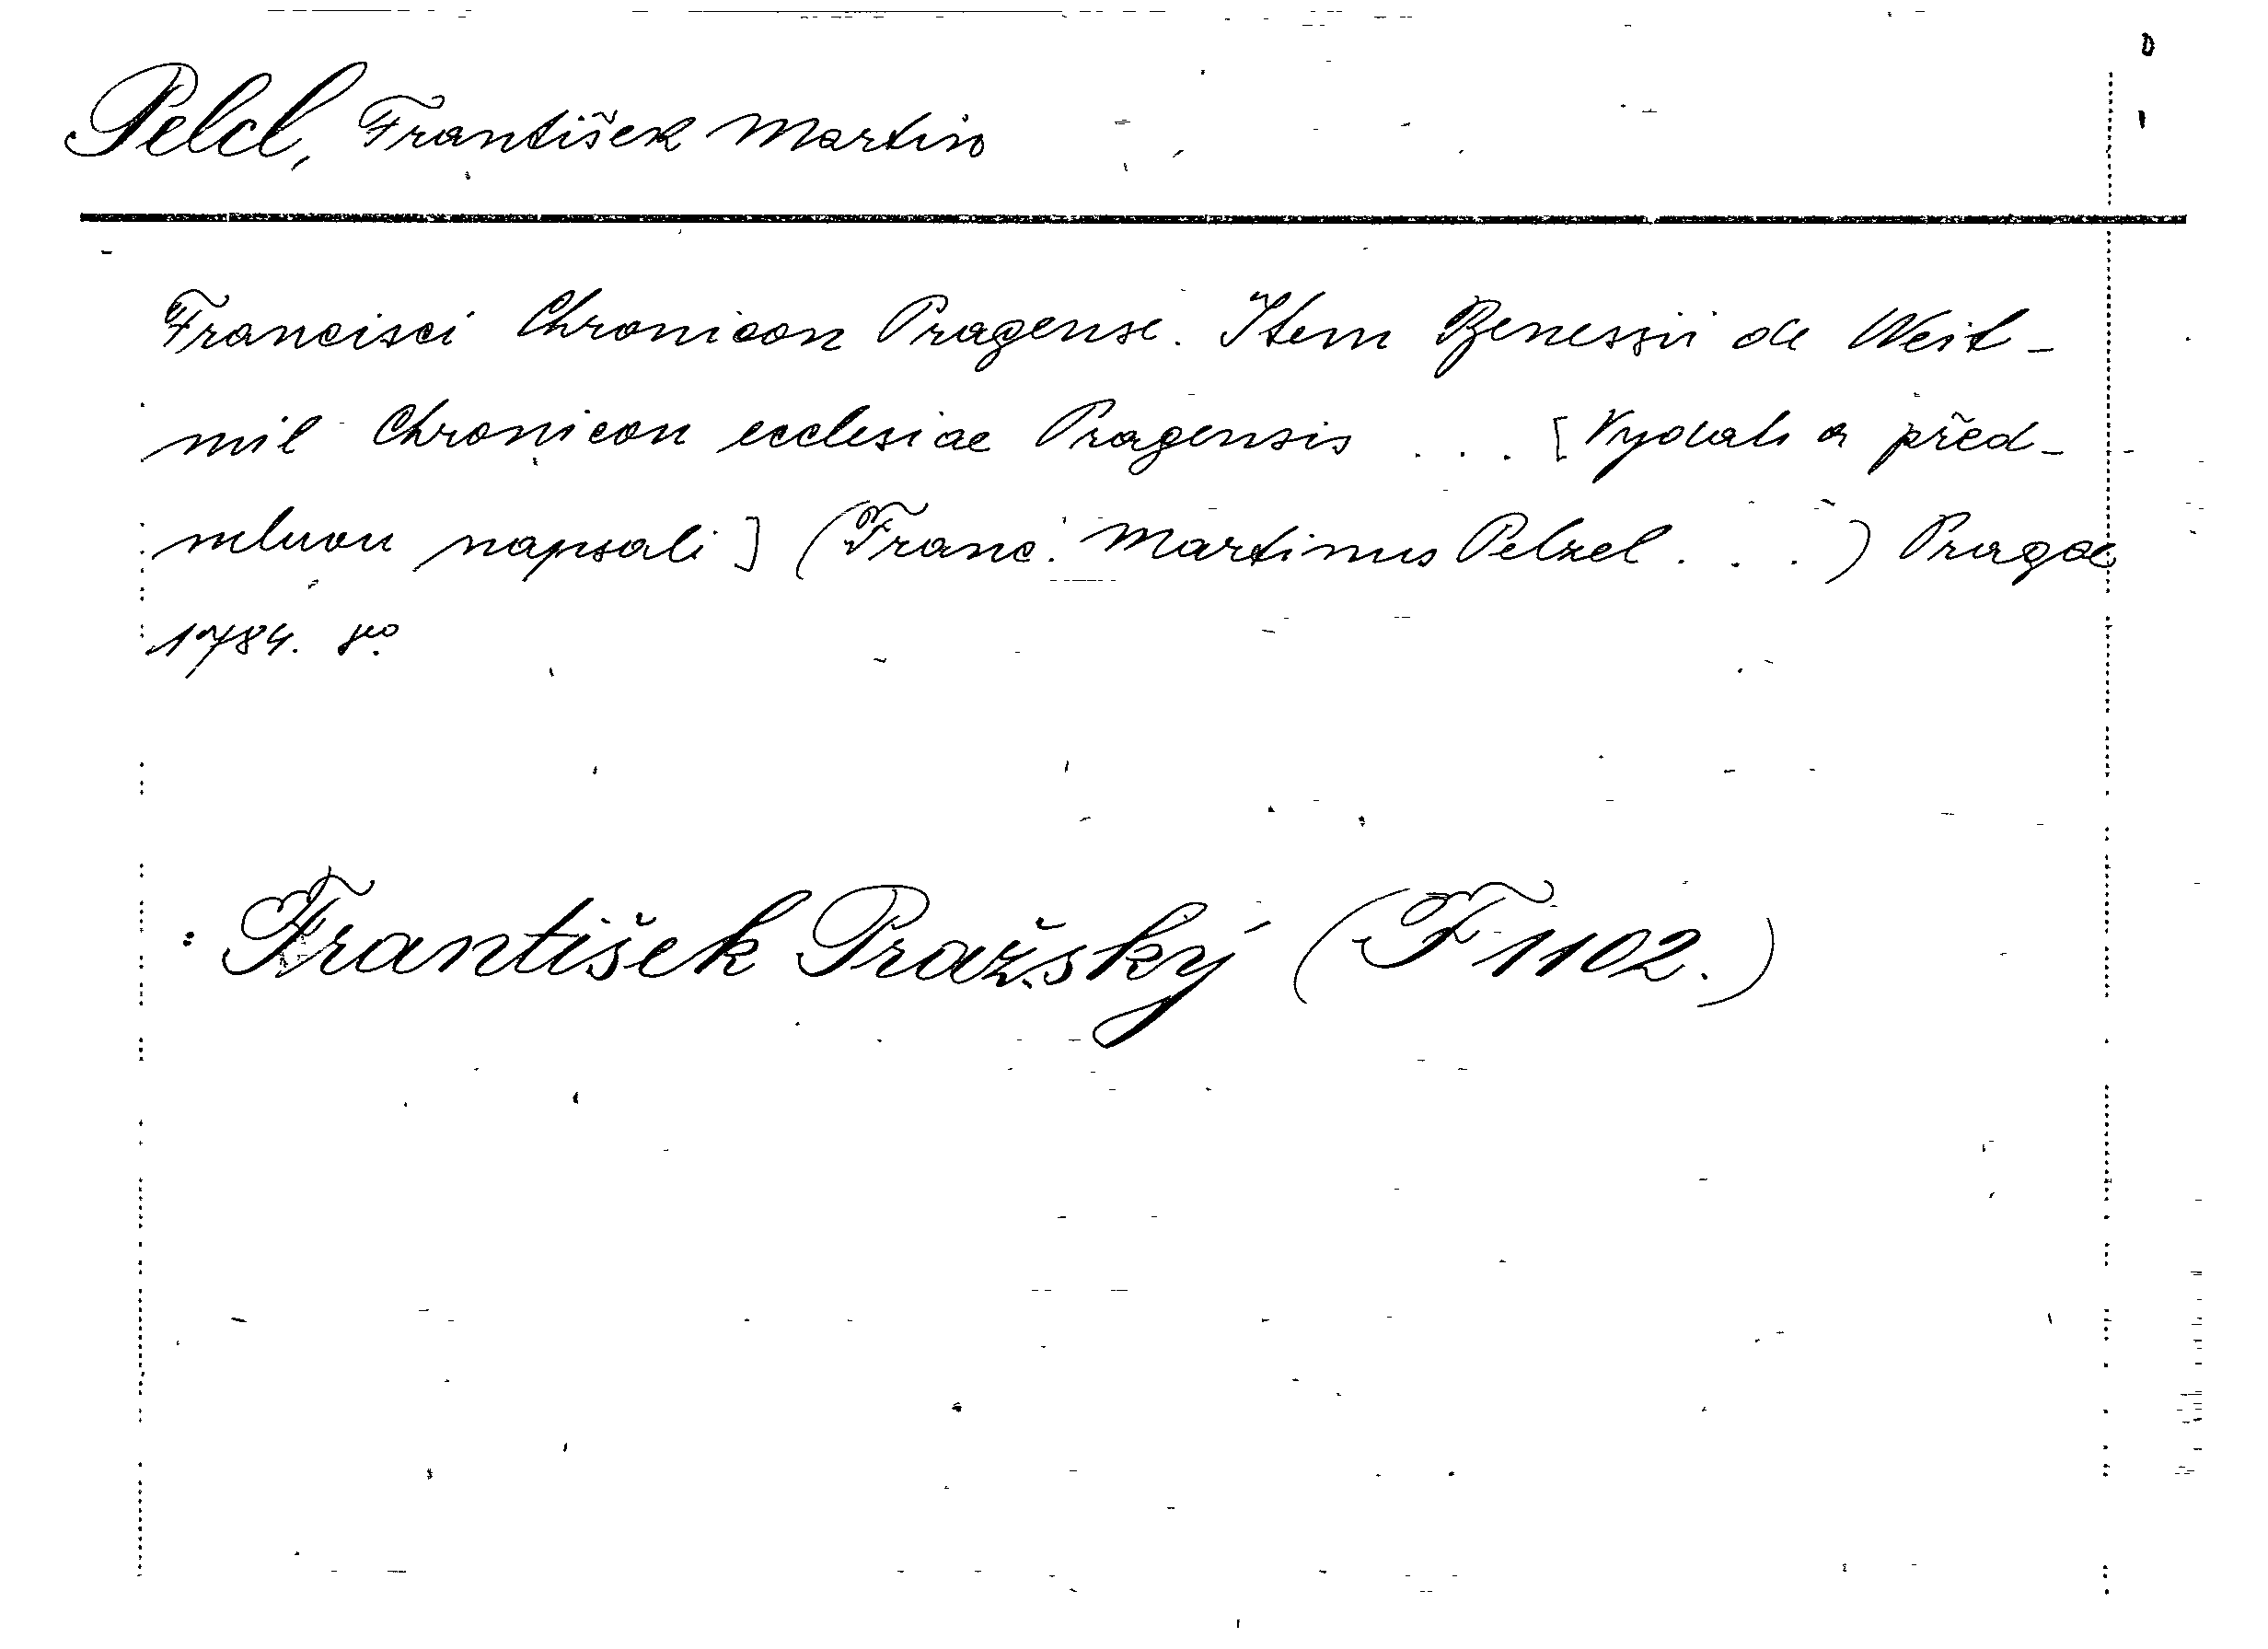 Pelcl, František Martin
Francisci Chronicon Pragense. Item Benessii de Weit-
mil Chronicon ecclesiae Pragensis ... [Vydali a před-
mluvu napsali] (Franc. Martinus Pelzel ...) Pragae
1784. 8º.
František Pražský (F 1102.)